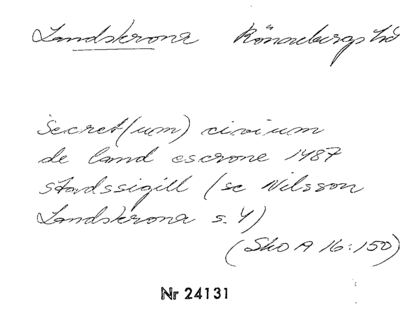 Landskrona Rönnebergs hd
Secret(um) civium
de land escrone 1487
stadssigill (se Nilsson
Landskrona s. 4)
(Sko A 16:150)
Nr 24131